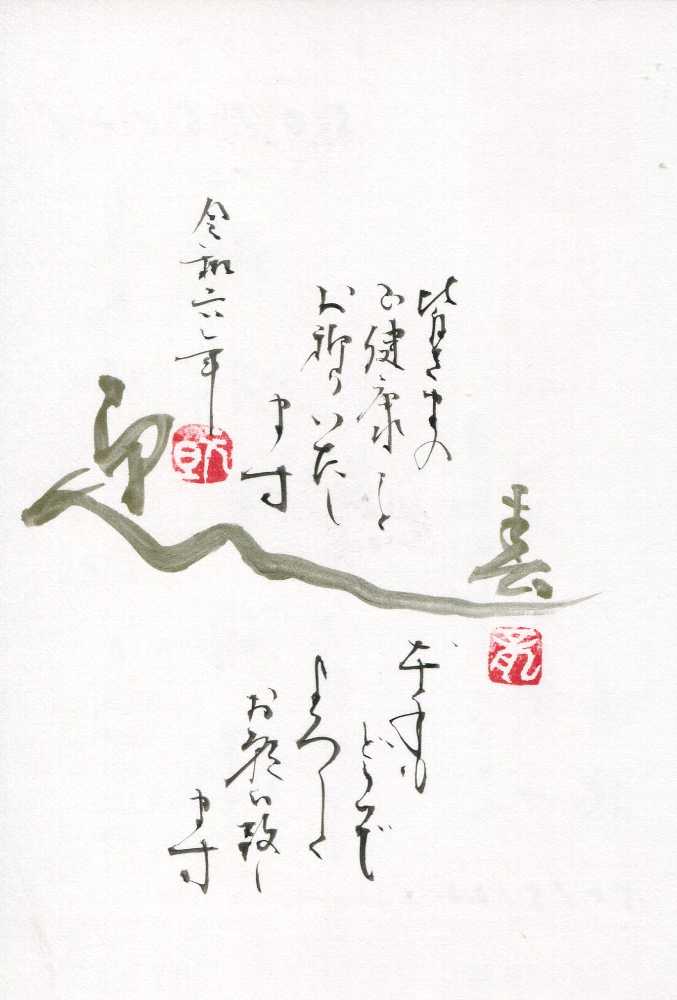 迎春
皆さまの
ご健康を
お祈りいたし
ます
本年も
どうぞ
よろしく
お願い致し
ます
令和六年